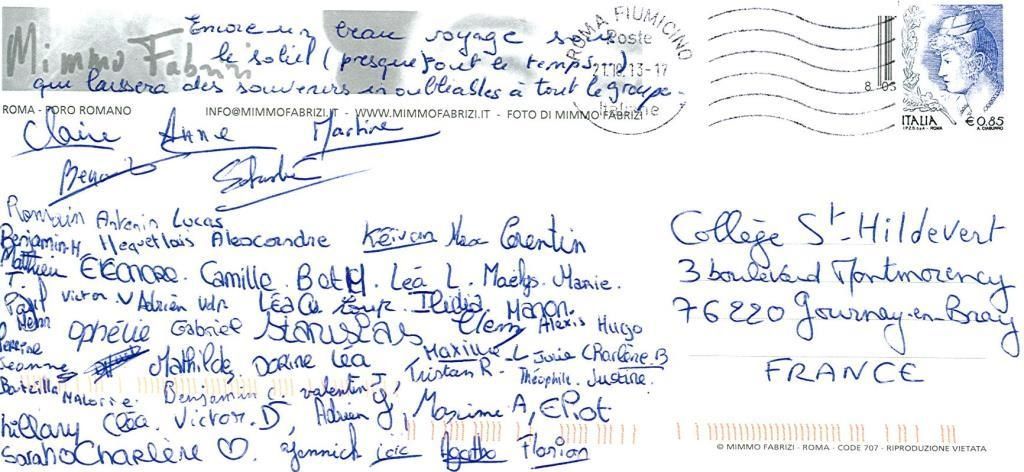 Mimmo Fabrizi
Encore un beau voyage sous
le soleil (presque tout le temps)
qui laissera des souvenirs inoubliables à tout le groupe.
ROMA FIUMICINO
Poste
21.10.13-17
Italiane
8 05
ITALIA € 0,85
I.P.Z.S. S.p.A. - ROMA A. CIABURRO
ROMA - FORO ROMANO INFO@MIMMOFABRIZI.IT - WWW.MIMMOFABRIZI.IT - FOTO DI MIMMO FABRIZI
Claire Anne Martine
Benoit Sébastien
Romain Antonin Lucas
Benjamin.H Hequet Loïs Alexandre Kéivan Max Corentin
Matthieu ÉLÉONORE. Camille Bat M. Léa L. Maëlys. Marie.
T.
Paul Victor.V Adrien vdr Léa Cu Ilidia Manon.
Henri OPHÉLIE Gabriel STANISLAS Clem Alexis Hugo
Perrine
Jeanne Mathilde Dorine Léa Maxime L Julie CHarlène B
Tristan R- Théophile. Justine.
Batzilla MALORIE. Benjamin C. valentin J,
hillary Cléa. Victor.D, Adrien J, Maxime A, Eliot
Sarah Charlène ♡. Yannick Loïc Agathe Florian
Collège St-Hildevert
3 boulevard Montmorency
76220 Gournay-en-Bray
FRANCE
© MIMMO FABRIZI - ROMA - CODE 707 - RIPRODUZIONE VIETATA